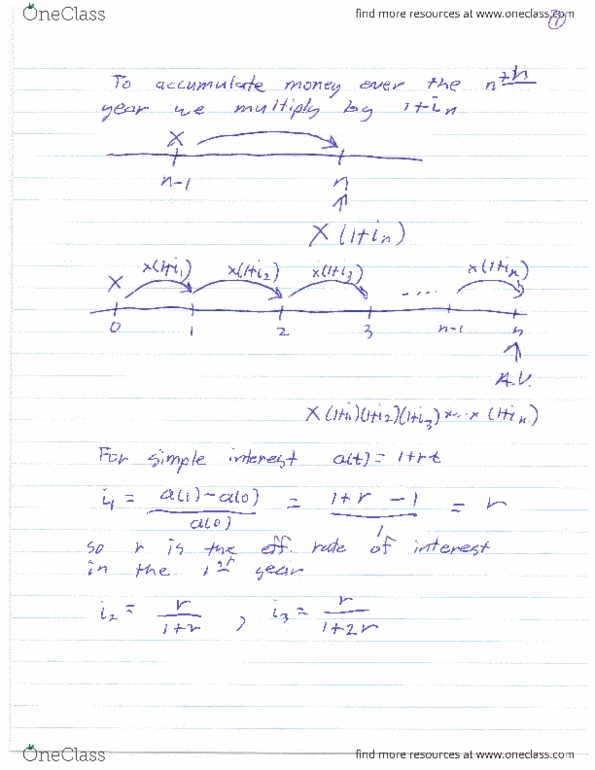 OneClass find more resources at www.oneclass.com
To accumulate money over the nth
year we multiply by 1+in
X
n-1 n
X(1+in)
X x(1+i1) x(1+i2) x(1+i3) .... x(1+in)
0 1 2 3 n-1 n
A.V.
X(1+i1)(1+i2)(1+i3)x...x(1+in)
For simple interest a(t) = 1+rt
i1 = a(1)-a(0) / a(0) = 1+r -1 / 1 = r
so r is the eff. rate of interest
in the 1st year
i2 = r / 1+r , i3 = r / 1+2r
OneClass find more resources at www.oneclass.com